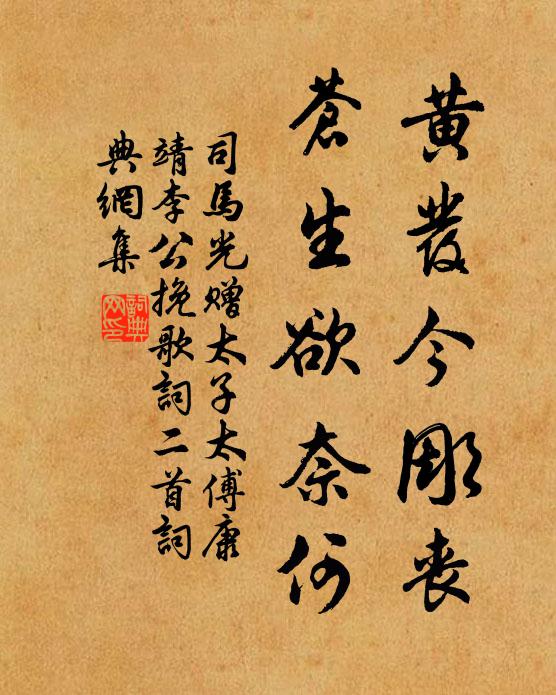 黃發今彫喪
蒼生欲奈何
司馬光贈太子太傅康
靖李公挽歌詞二首詞
典網集
詞典
网印